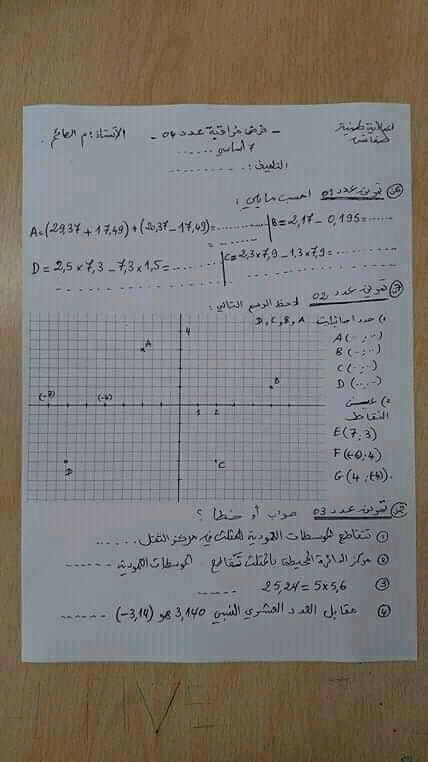 اعدادية طينة صفاقس
- فرض مراقبة عدد 04 -
الأستاذ: م الصائم
7 أساسي ......
التلميذ: ..........
تمرين عدد 01 احسب مايلي :
A=(29,37 + 17,49) + (20,37 - 17,49)= ..........
= ..........
B = 2,17 - 0,195 = ......
D = 2,5 x 7,3 - 7,3 x 1,5 = ........
C = 2,3 x 7,9 - 1,3 x 7,9 = ........
تمرين عدد 02 لاحظ الرسم التالي :
1) حدد احداثيات D, C, B, A
A (..;..)
B (..;..)
C (..;..)
D (..;..)
2) عين النقاط
E (7;3)
F (-6;4)
G (4;(-4)).
4
A
B
1 2
C
D
تمرين عدد 03 صواب أو خطأ ؟
① تتقاطع الموسطات العمودية للمثلث في مركز الثقل ......
② مركز الدائرة المحيطة بالمثلث تقاطع الموسطات العمودية ......
③ 25,24 = 5 x 5,6 ......
④ مقابل العدد العشري النسبي 3,140 هو (-3,14) ......